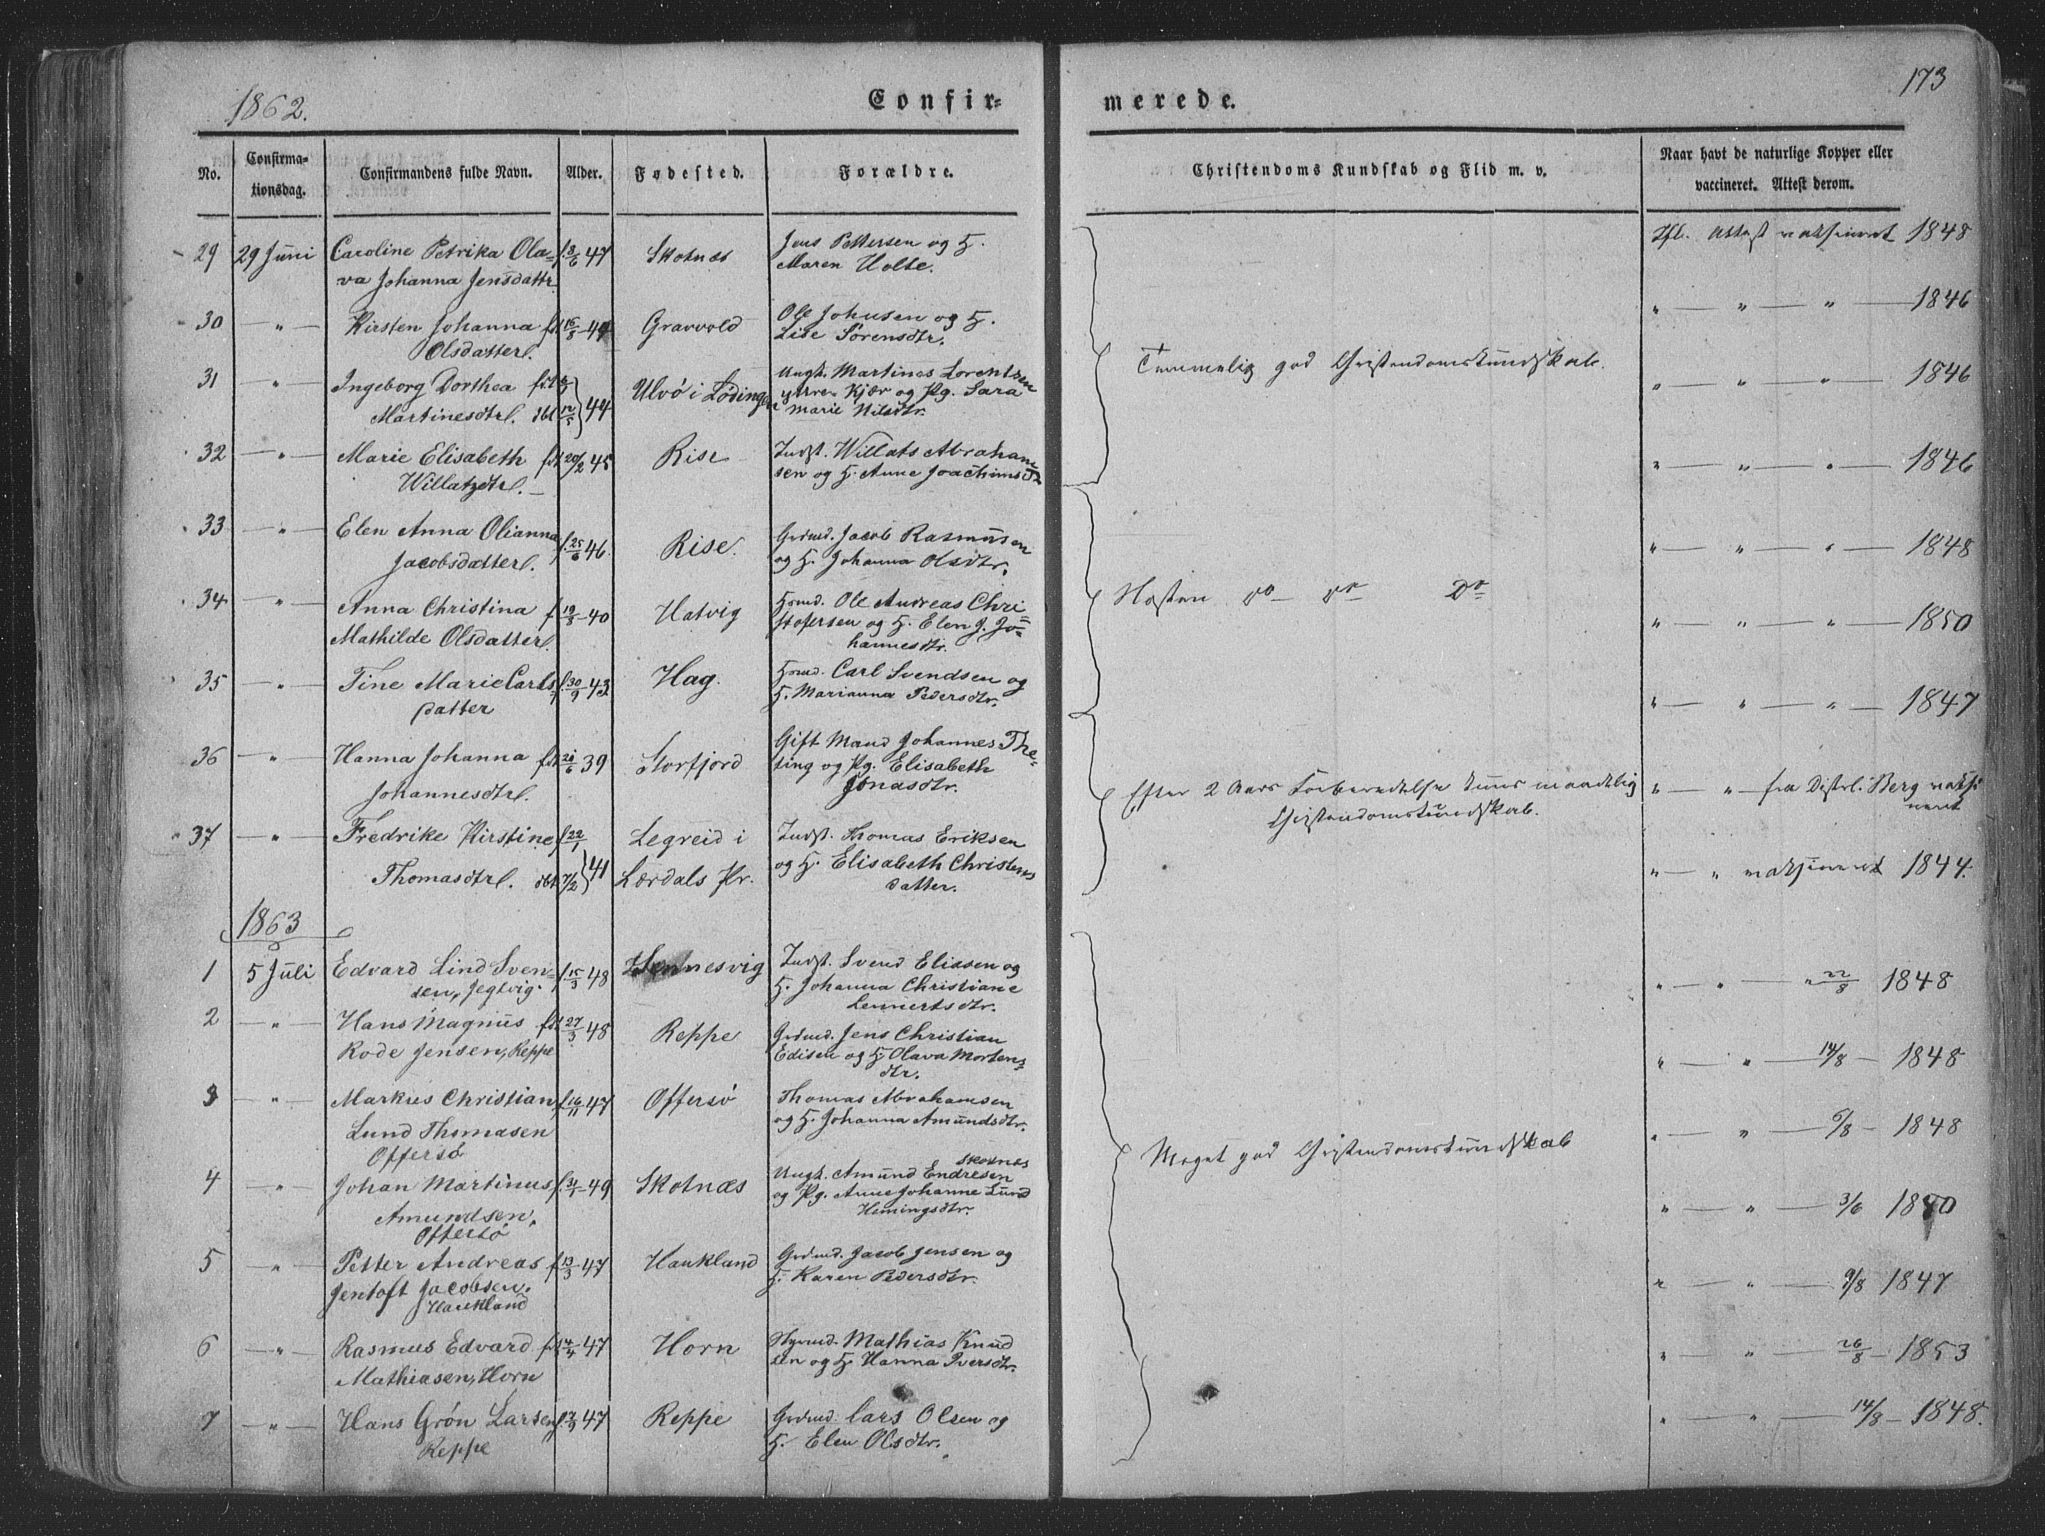 1862.
Confir=
merede.
173
No.
Confirma=
tionsdag.
Confirmandens fulde Navn.
Alder.
Fødested.
Forældre.
Christendoms Kundskab og Flid m. v.
Naar havt de naturlige Kopper eller
vaccineret. Attest derom.
29 29 Juni Caroline Petrika Ola= f. 8/6 47 Skotnæs Jens Pettersen og H.
va Johanna Jensdattr. Maren Holte.
Ifl. Attest vaksineret 1848
30 — " — Kirsten Johanna fdt 16/8 44 Gravvold Ole Johnsen og H.
Olsdatter. Lise Sørensdtr.
" — " — " — 1846
Temmelig god Christendomskundskab.
31 " Ingeborg Dorthea fdt Ulvø i Lødingen Ungk. Martines Lorentzen
Martinesdtr. dbt 17/5 44 ytre Kjær og Pg. Sara
Marie Nilsdtr.
" — " — " — 1846
32 — " — Marie Elisabeth fdt 20/2 45 Rise Indst. Willats Abraham
Willatzdtr. — sen og H. Anne Joachimsdtr
" — " — " — 1846
33 — " — Elen Anna Olianna f. 25/6 46. Rise. Grdmd. Jacob Rasmusen
Jacobsdatter. og H. Johanna Olsdtr.
" — " — " — 1848
Næsten do do Do
34 — " — Anna Christina f. 19/3 40 Hatvig Hsmd. Ole Andreas Chri=
Mathilde Olsdatter. stofersen og H. Elen J. Jo=
hannesdtr.
" — " — " — 1850
35 — " — Tine Marie Carls= f. 30/9 43. Hag. Hsmd. Carl Svendsen og
datter H. Marianna Pedersdtr.
" — " — " — 1847
36 — " — Hanna Johanna fdt 20/6 39 Storfjord Gift Mand Johannes The=
ting og Pg. Elisabeth
Johannesdtr. Jonasdtr.
Efter 2 Aars Forberedelse kuns maadelig
Christendomskundskab.
" — " — fra Distrl. Berg vaksi
neret
37 — " — Fredrike Kirstine f. 22/1 Legreid i Indst. Thomas Eriksen
Thomasdtr. dbt 7/2 41 Lærdals Pr. og H. Elisabeth Christens
datter.
" — " vaksineret 1844.
1863
1 5 Juli Edvard Lind Sven= f. 15/3 48 Hennesvig Indst. Svend Eliasen og
sen, Jegtvig. H. Johanna Christiane
Lennertsdtr.
" — " — " 22/8 1848
2 — " — Hans Magnus fdt 27/3 48 Reppe Grdmd. Jens Christian
Rode Jensen, Reppe Edisen og H. Olava Mortens=
dtr.
" — " — 14/8 — 1848
3 — " — Markus Christian f. 16/11 47 Offersø Thomas Abrahamsen
Lund Thomasen og H. Johanna Amundsdtr.
Offersø
" — " — 6/8 — 1848
Meget god Christendomskundskab
4 — " — Johan Martinus f. 31/1 49 Skotnæs Ungk. Amund Endresen Skotnæs
Amundsen, og Pg. Anne Johanne Lund
Offersø Hemingsdtr.
" — " — 3/6 1850
5 — " — Petter Andreas f. 13/3 47 Haukland Grdmd. Jacob Jensen og
Jentoft Jacobsen. H. Karen Pedersdtr.
Haukland
" — " — 9/8 1847
6 — " — Rasmus Edvard fdt 14/4 47 Horn Styrmd. Mathias Knud
Mathiasen, Horn sen og H. Hanna Iversdtr.
" — " — 26/8 — 1853
7 — " — Hans Grøn Larsen f. 7/3 47 Reppe Grdmd. Lars Olsen og
Reppe H. Elen Olsdtr.
" — " — 14/8 — 1848.